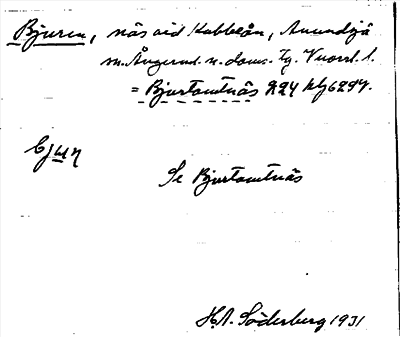 Bjuren, näs vid Kubbeån, Anundsjö
m. Ångerml. n. doms. Tg. Vnorrl. l.
= Bjurtomtnäs 224 hf 629 v.
bjuṟn
Se Bjurtomtnäs
H.A. Söderberg 1931